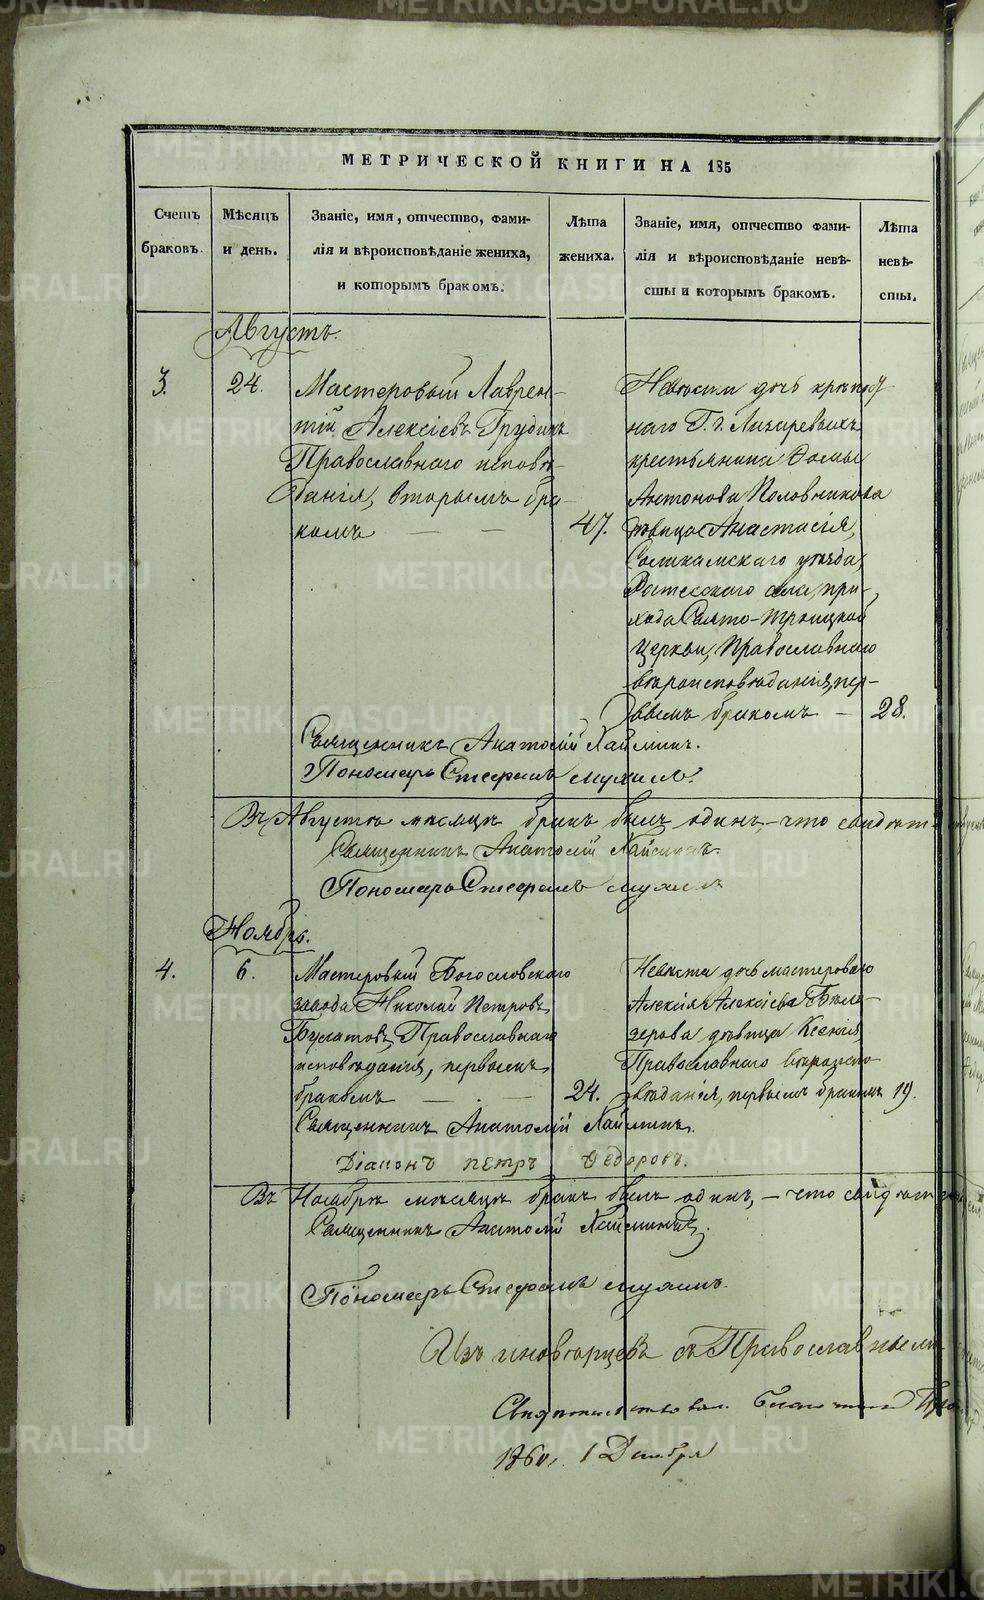 МЕТРИЧЕСКОЙ КНИГИ НА 185
Счетъ браковъ.
Мѣсяцъ и день.
Званіе, имя, отчество, фами-
лія и вѣроисповѣданіе жениха,
и которымъ бракомъ.
Лѣта
жениха.
Званіе, имя, отчество фами-
лія и вѣроисповѣданіе невѣ-
сты и которымъ бракомъ.
Лѣта
невѣ-
сты.
Августъ.
3.
24.
Мастеровый Лаврен-
тій Алексіевъ Грудинъ
Православнаго исповѣ-
данія, вторымъ бра-
комъ — — 47.
Невѣста дочь крѣпост
наго Г. г. Лазаревыхъ
крестьянина Ѳомы
Антонова Половникова
дѣвица Анастасія,
Соликамскаго уѣзда,
Ростесскаго села, при-
хода Свято-Троицкой
Церкви, Православнаго
вѣроисповѣданія, пер-
вымъ бракомъ — 28.
Священникъ Анатолій Хайминъ.
Пономарь Стефанъ
Въ Августѣ мѣсяцѣ бракъ былъ одинъ, — что свидѣт
Священникъ Анатолій Хайминъ.
Пономарь Стефанъ
Ноябрь.
4.
6.
Мастеровый Богословскаго
завода Николай Петровъ
Булатовъ, Православнаго
исповѣданія, первымъ
бракомъ — . — 24.
Невѣста дочь мастероваго
Алексія Алексіева Бѣло-
зерова дѣвица Ксенія,
Православнаго вѣроиспо-
вѣданія, первымъ бракомъ 19.
Священникъ Анатолій Хайминъ.
Діаконъ Петръ Ѳедоровъ.
Въ Ноябрѣ мѣсяцѣ бракъ былъ одинъ, — что свидѣт
Священникъ Анатолій Хайминъ.
Пономарь Стефанъ
Изъ иновѣрцевъ съ Православными
Свидѣтельствовал. благочинный
1860. 1 Декабря
METRIKI.GASO-URAL.RU